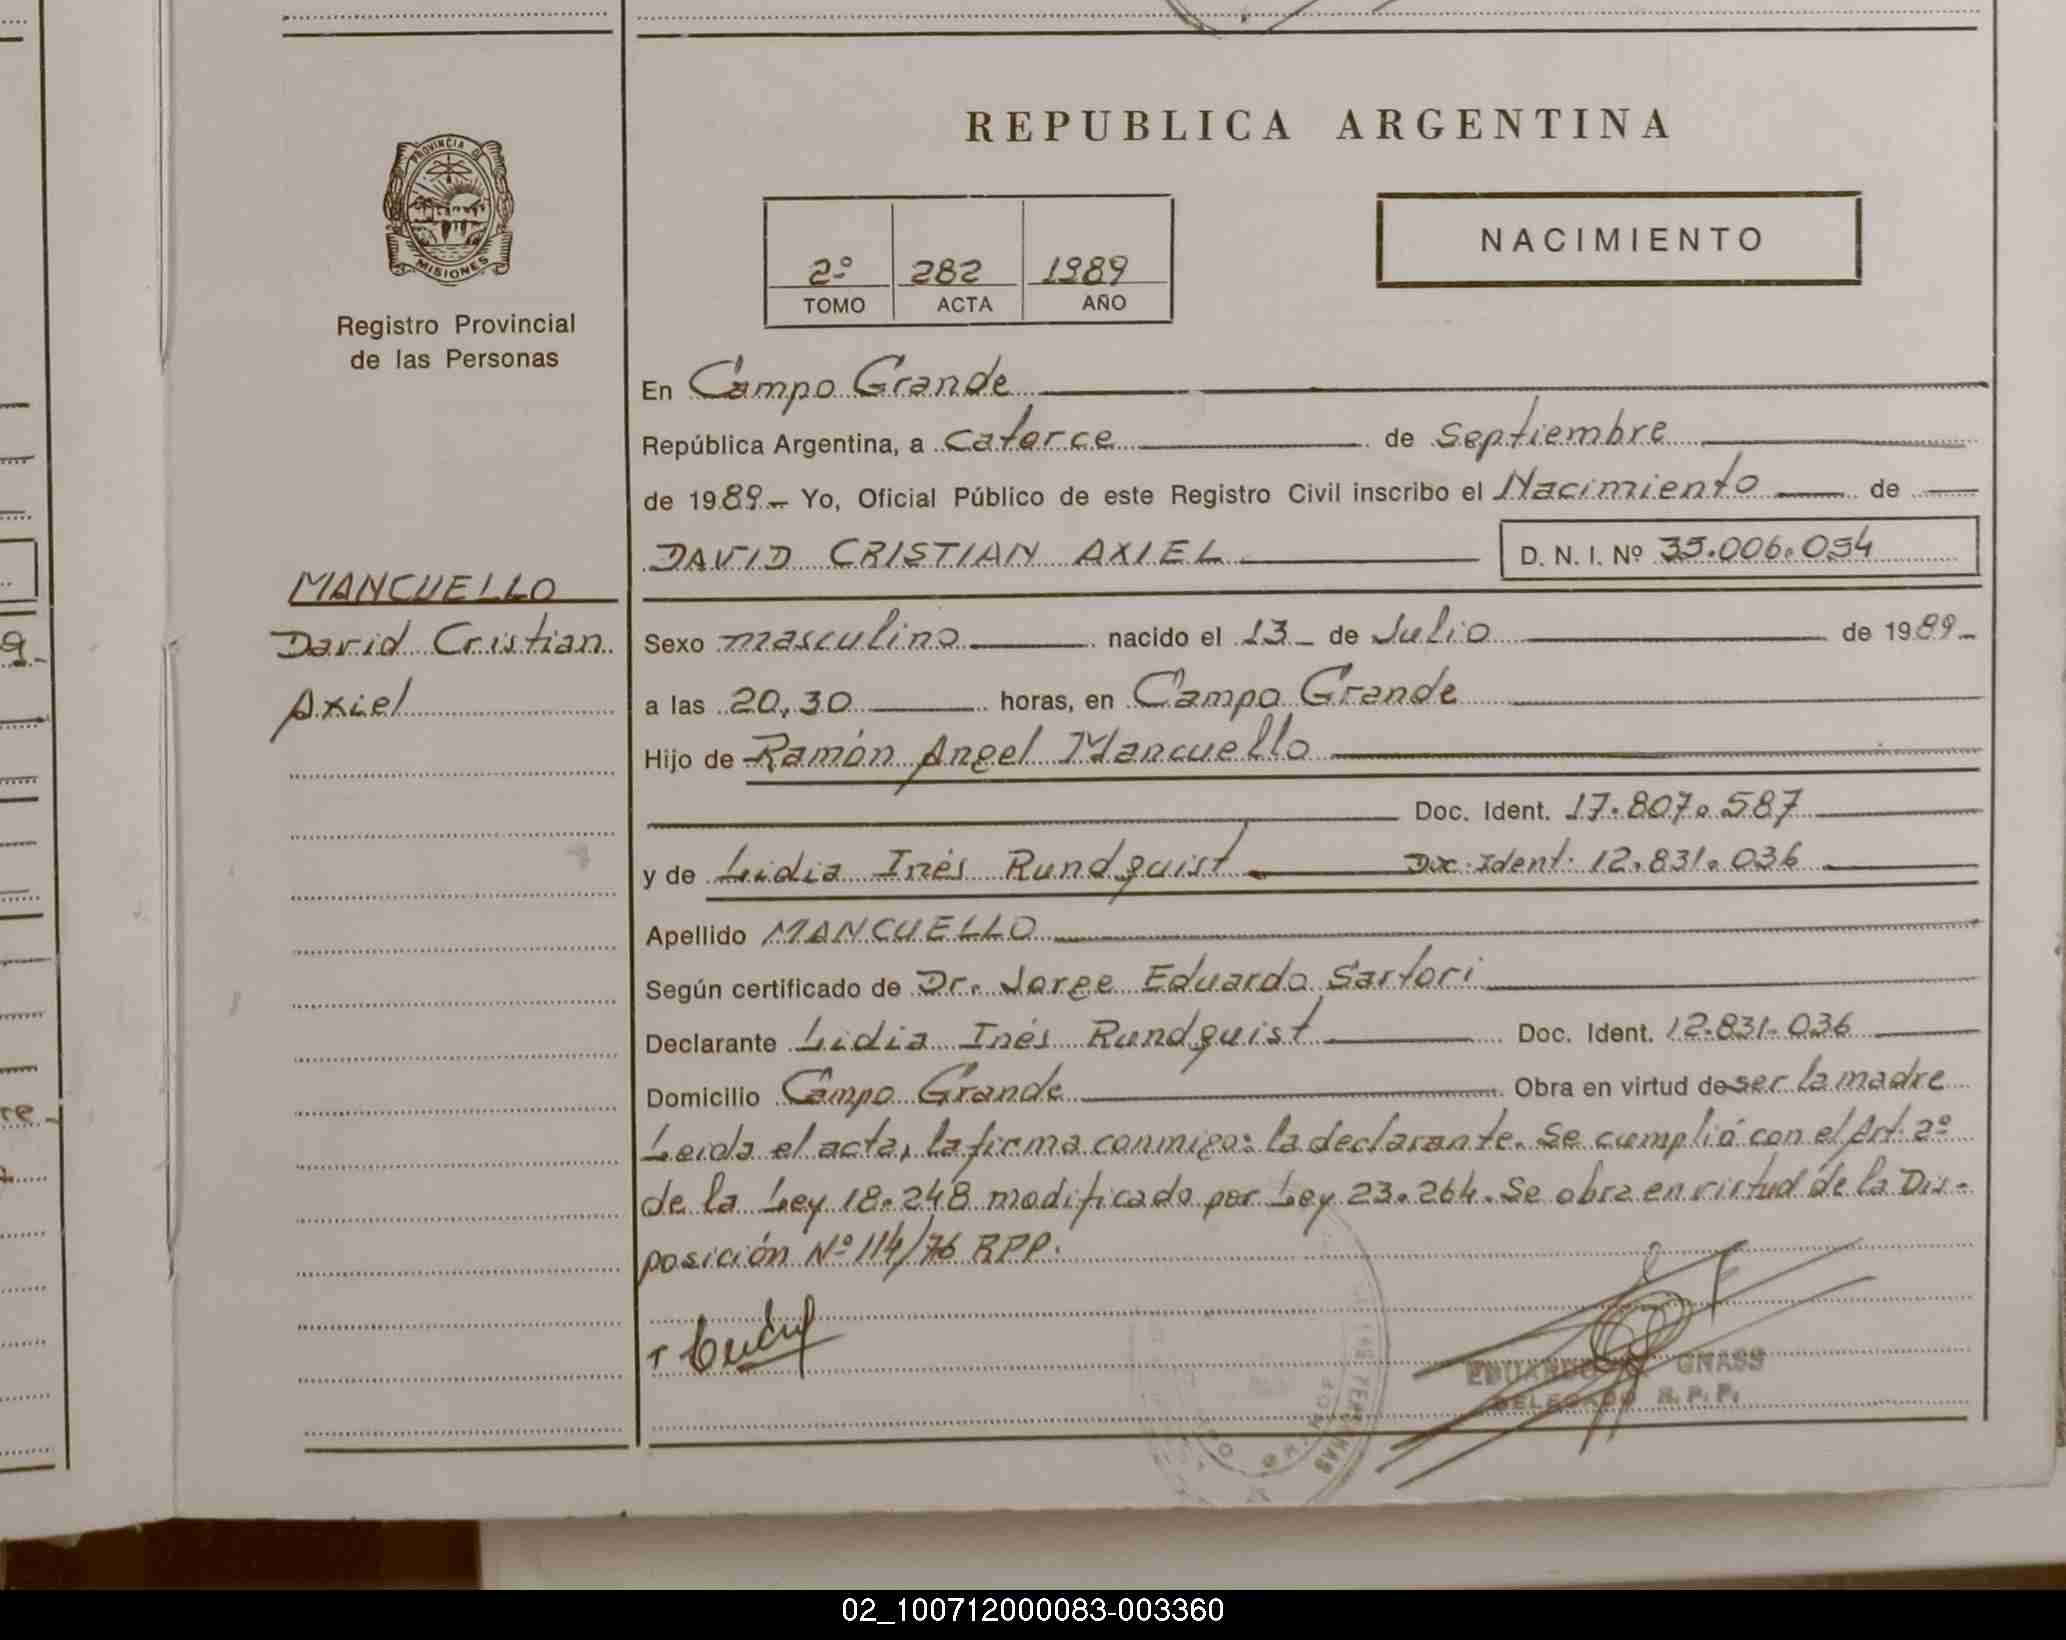 REPUBLICA ARGENTINA
PROVINCIA DE
MISIONES
Registro Provincial
de las Personas
2º 282 1989
TOMO ACTA AÑO
NACIMIENTO
En Campo Grande
República Argentina, a catorce de Septiembre
de 1989.- Yo, Oficial Público de este Registro Civil inscribo el Nacimiento de
DAVID CRISTIAN AXIEL D. N. I. Nº 35.006.054
MANCUELLO
David Cristian
Axiel
Sexo masculino nacido el 13 de Julio de 1989-
a las 20,30 horas, en Campo Grande
Hijo de Ramón Angel Mancuello
Doc. Ident. 17.807.587
y de Lidia Inés Rundquist Doc. Ident: 12.831.036
Apellido MANCUELLO
Según certificado de Dr. Jorge Eduardo Sartori
Declarante Lidia Inés Rundquist Doc. Ident. 12.831.036
Domicilio Campo Grande Obra en virtud de ser la madre
Leida el acta, la firma conmigo: la declarante. Se cumplió con el Art. 2º
de la Ley 18.248 modificado por Ley 23.264. Se obra en virtud de la Dis-
posición Nº 114/76 RPP.
EDUARDO GNASS
DELEGADO R.P.P.
02_100712000083-003360